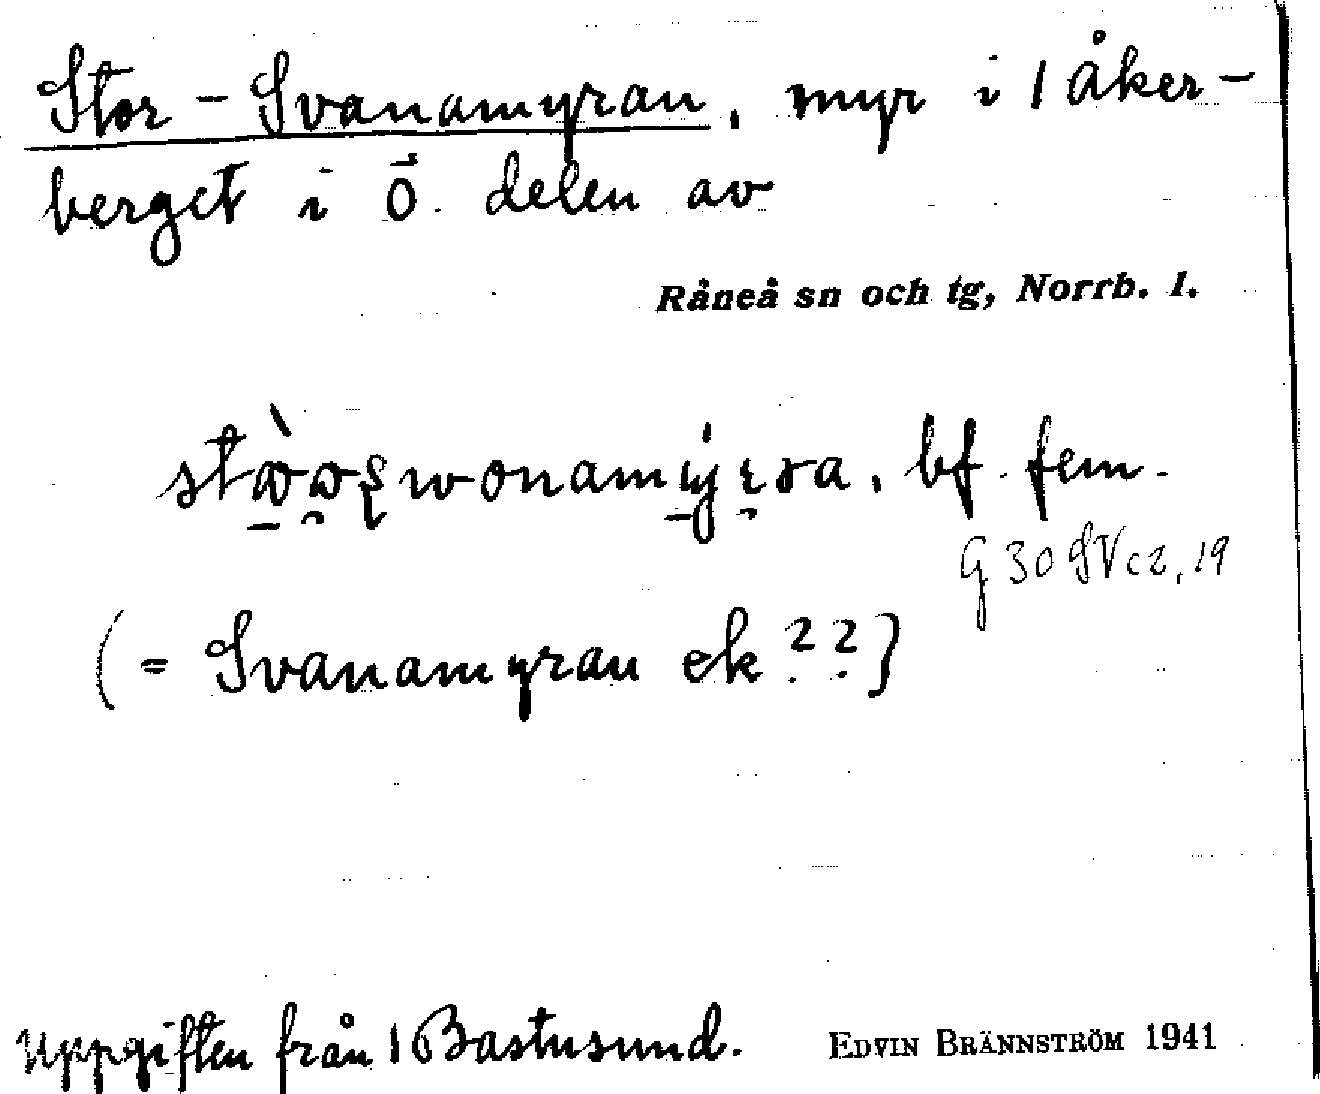 Stor-Svanamyran, myr i 1 Åker-
berget i Ö. delen av
Råneå sn och tg, Norrb. l.
bf. fem.
G 30 SV c2, 19
(= Svanamyran ek??)
Uppgiften från 1 Bastusund. EDVIN BRÄNNSTRÖM 1941